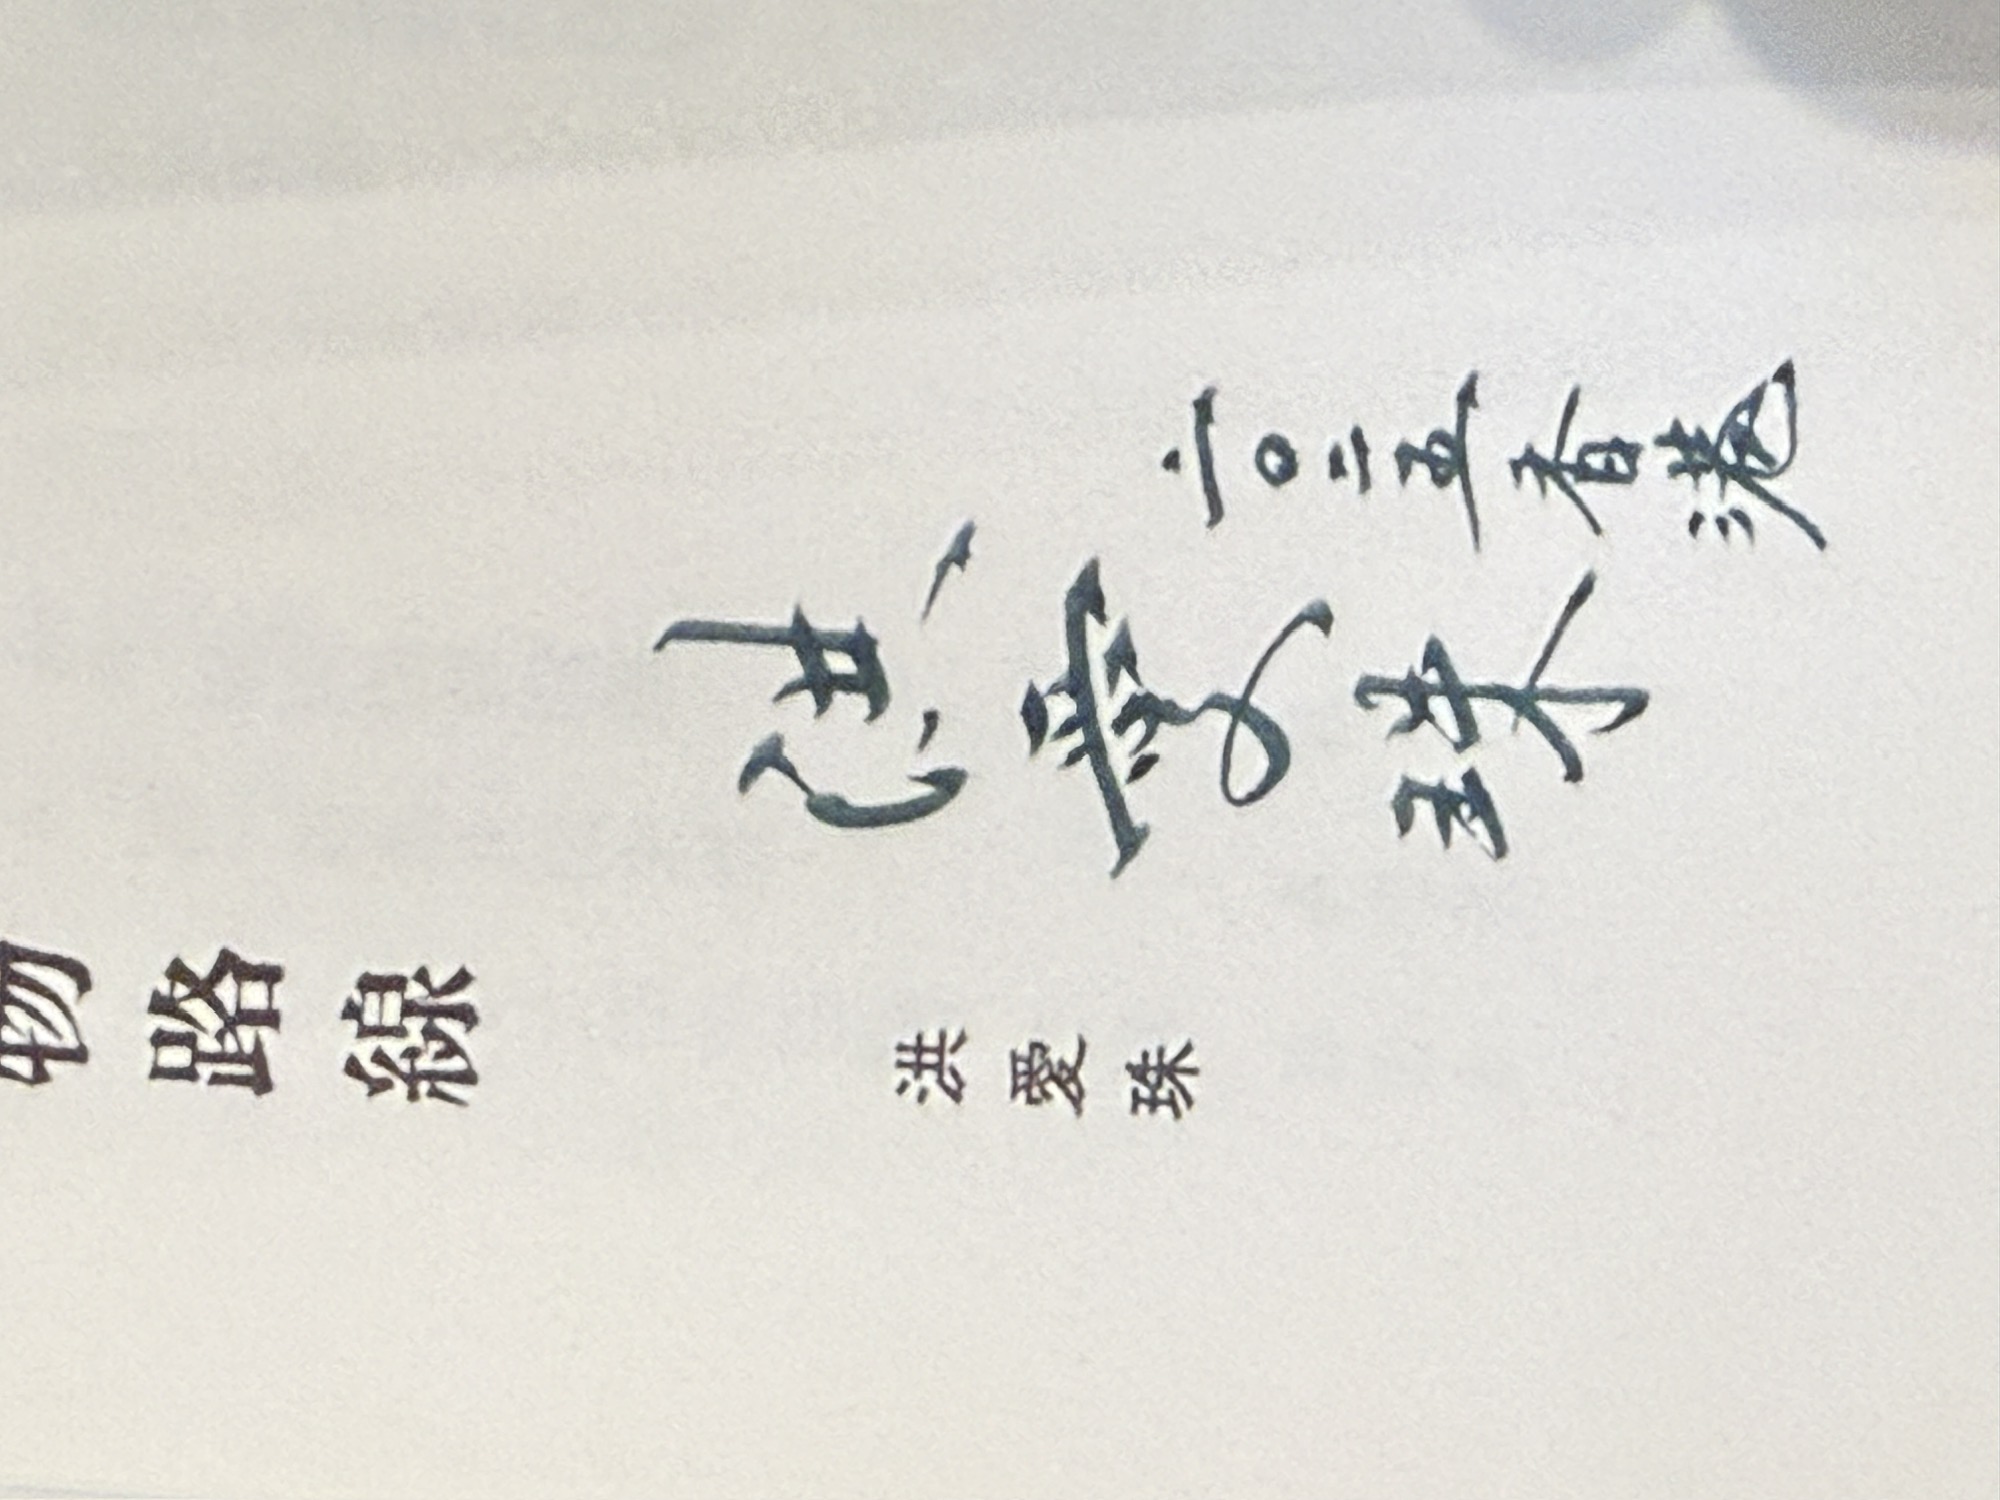 二〇二五春港
洪愛珠
物路線
洪愛珠